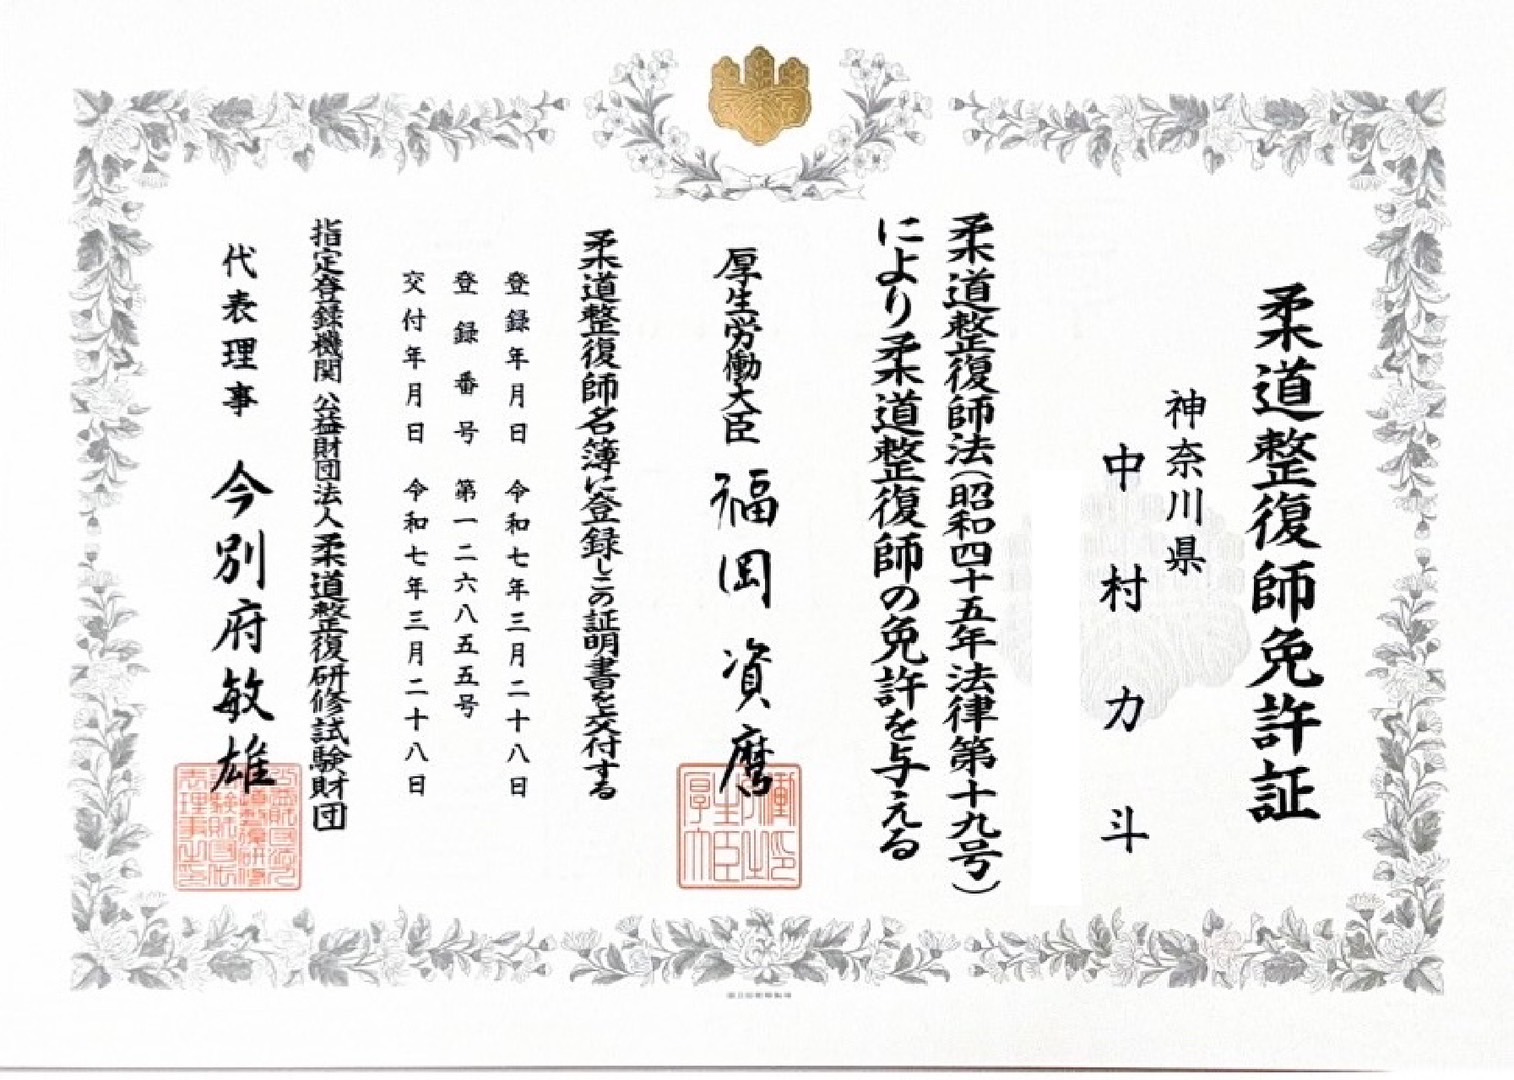 柔道整復師免許証
神奈川県
中村力斗
柔道整復師法(昭和四十五年法律第十九号)
により柔道整復師の免許を与える
厚生労働大臣 福岡資麿
柔道整復師名簿に登録しこの証明書を交付する
登録年月日 令和七年三月二十八日
登録番号 第一二六八五五号
交付年月日 令和七年三月二十八日
指定登録機関 公益財団法人柔道整復研修試験財団
代表理事 今別府敏雄